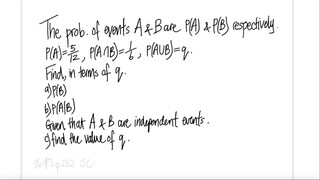 The prob. of events A & B are P(A) & P(B) respectively.
P(A)=5/12, P(A∩B)=1/6, P(A∪B)=q.
Find, in terms of q.
a) P(B)
b) P(A|B)
Given that A & B are independent events.
c) find the value of q.